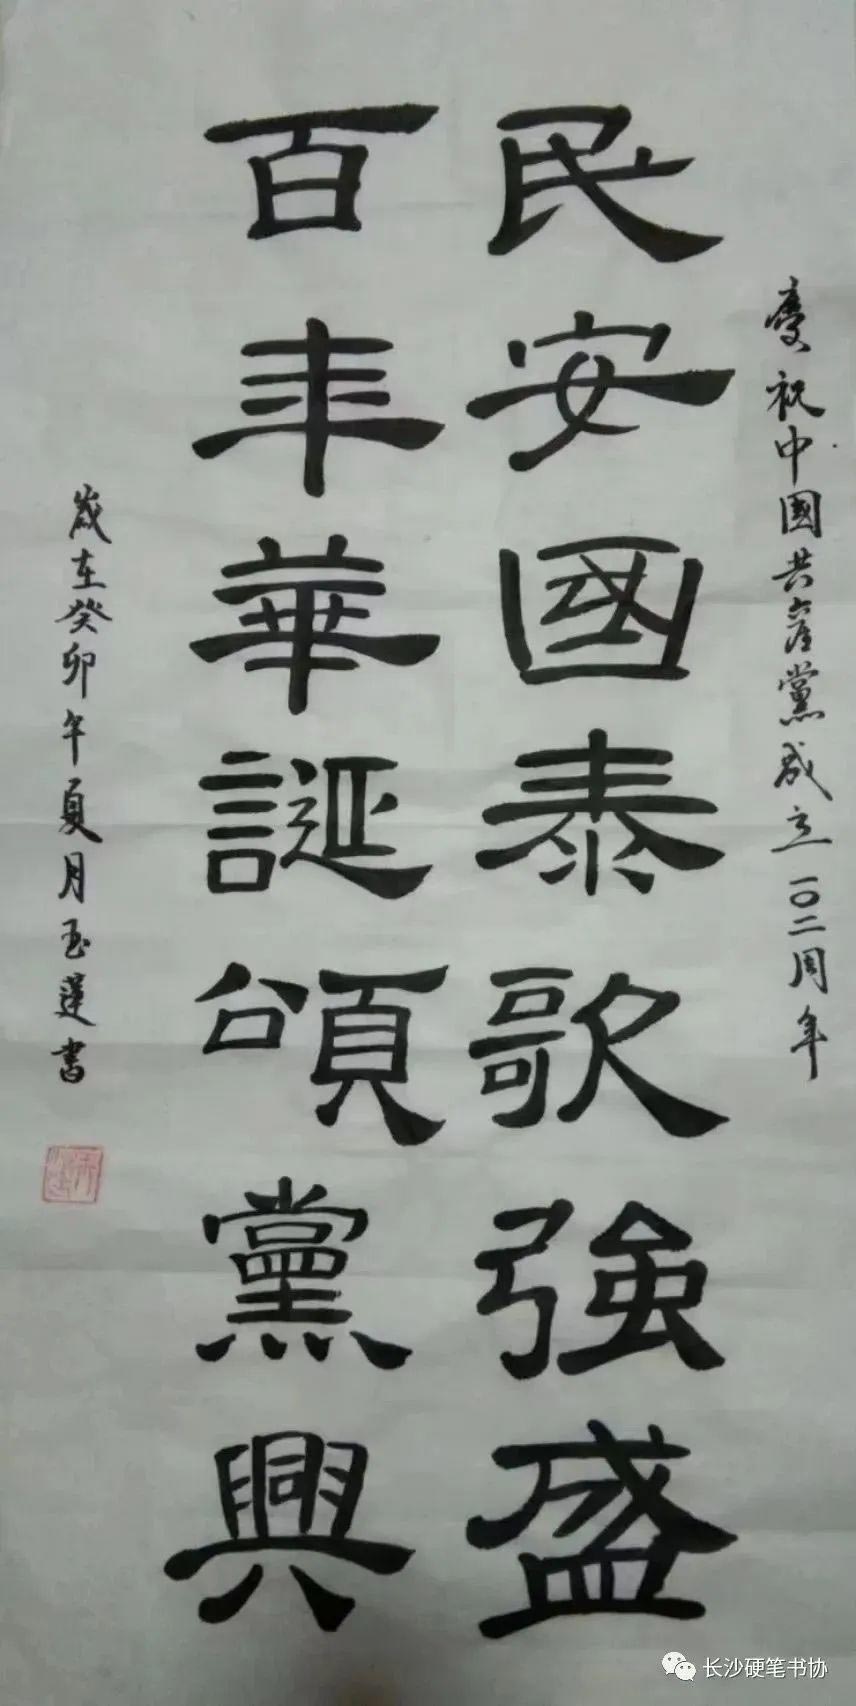 慶祝中國共產黨成立一〇二周年
民安國泰歌強盛
百年華誕頌黨興
歲在癸卯年夏月玉蓮書
长沙硬笔书协